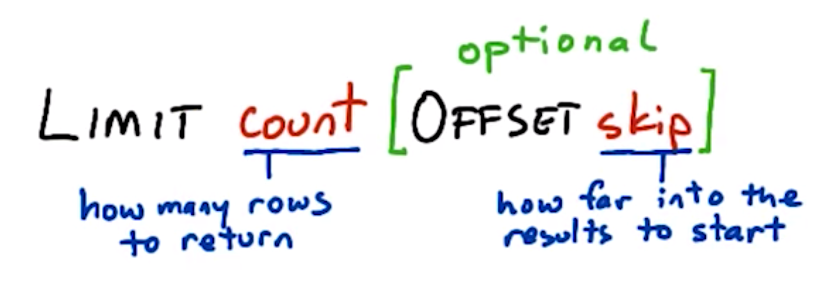 optional
LIMIT count [OFFSET skip]
how many rows
to return
how far into the
results to start